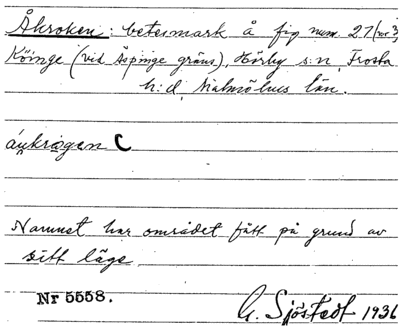 Åkroken: betesmark å fig num. 27 (nr 3,
Köinge (vid Äspinge gräns), Hörby s:n, Frosta
h:d, Malmöhus län.
áu̯krọgen C
Namnet har området fått på grund av
sitt läge
Nr 5558.
G. Sjöstedt 1936